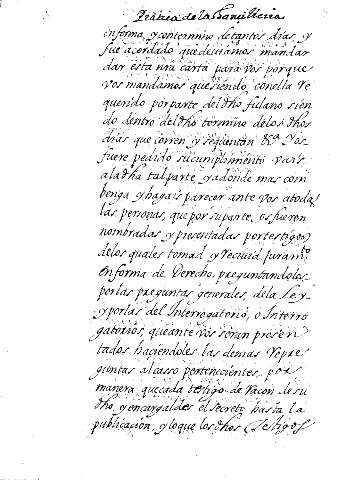 Prática de la Chancilleria
informa, y con termino de tantos dias, y
fué acordado que deviamos mandar
dar esta nrã carta para vos porque
vos mandamos que siendo, con ella re
querido por parte del dho fulano sien
do dentro del dho termino de los dhos
dias que corren y se quentan &ª Vos
fuere pedido su cumplimiento vais
a la dha tal parte, y adonde mas com
benga y hagais parecer ante vos a todas
las personas, que por su parte, os fueren
nombradas y presentadas por testigos
de los quales tomad y recivid Juramto
en forma de Derecho, preguntandoles,
por las preguntas generales, de la Ley
y por las del Interrogatorio, o Interro
gatorios, que ante vos seran presen
tados haciendoles las demas repre
guntas al caso pertenecientes, por
manera que cada testigo de racon de su
dho, y encargaldes el secreto hasta la
publicacion, y lo que los dhos testigos